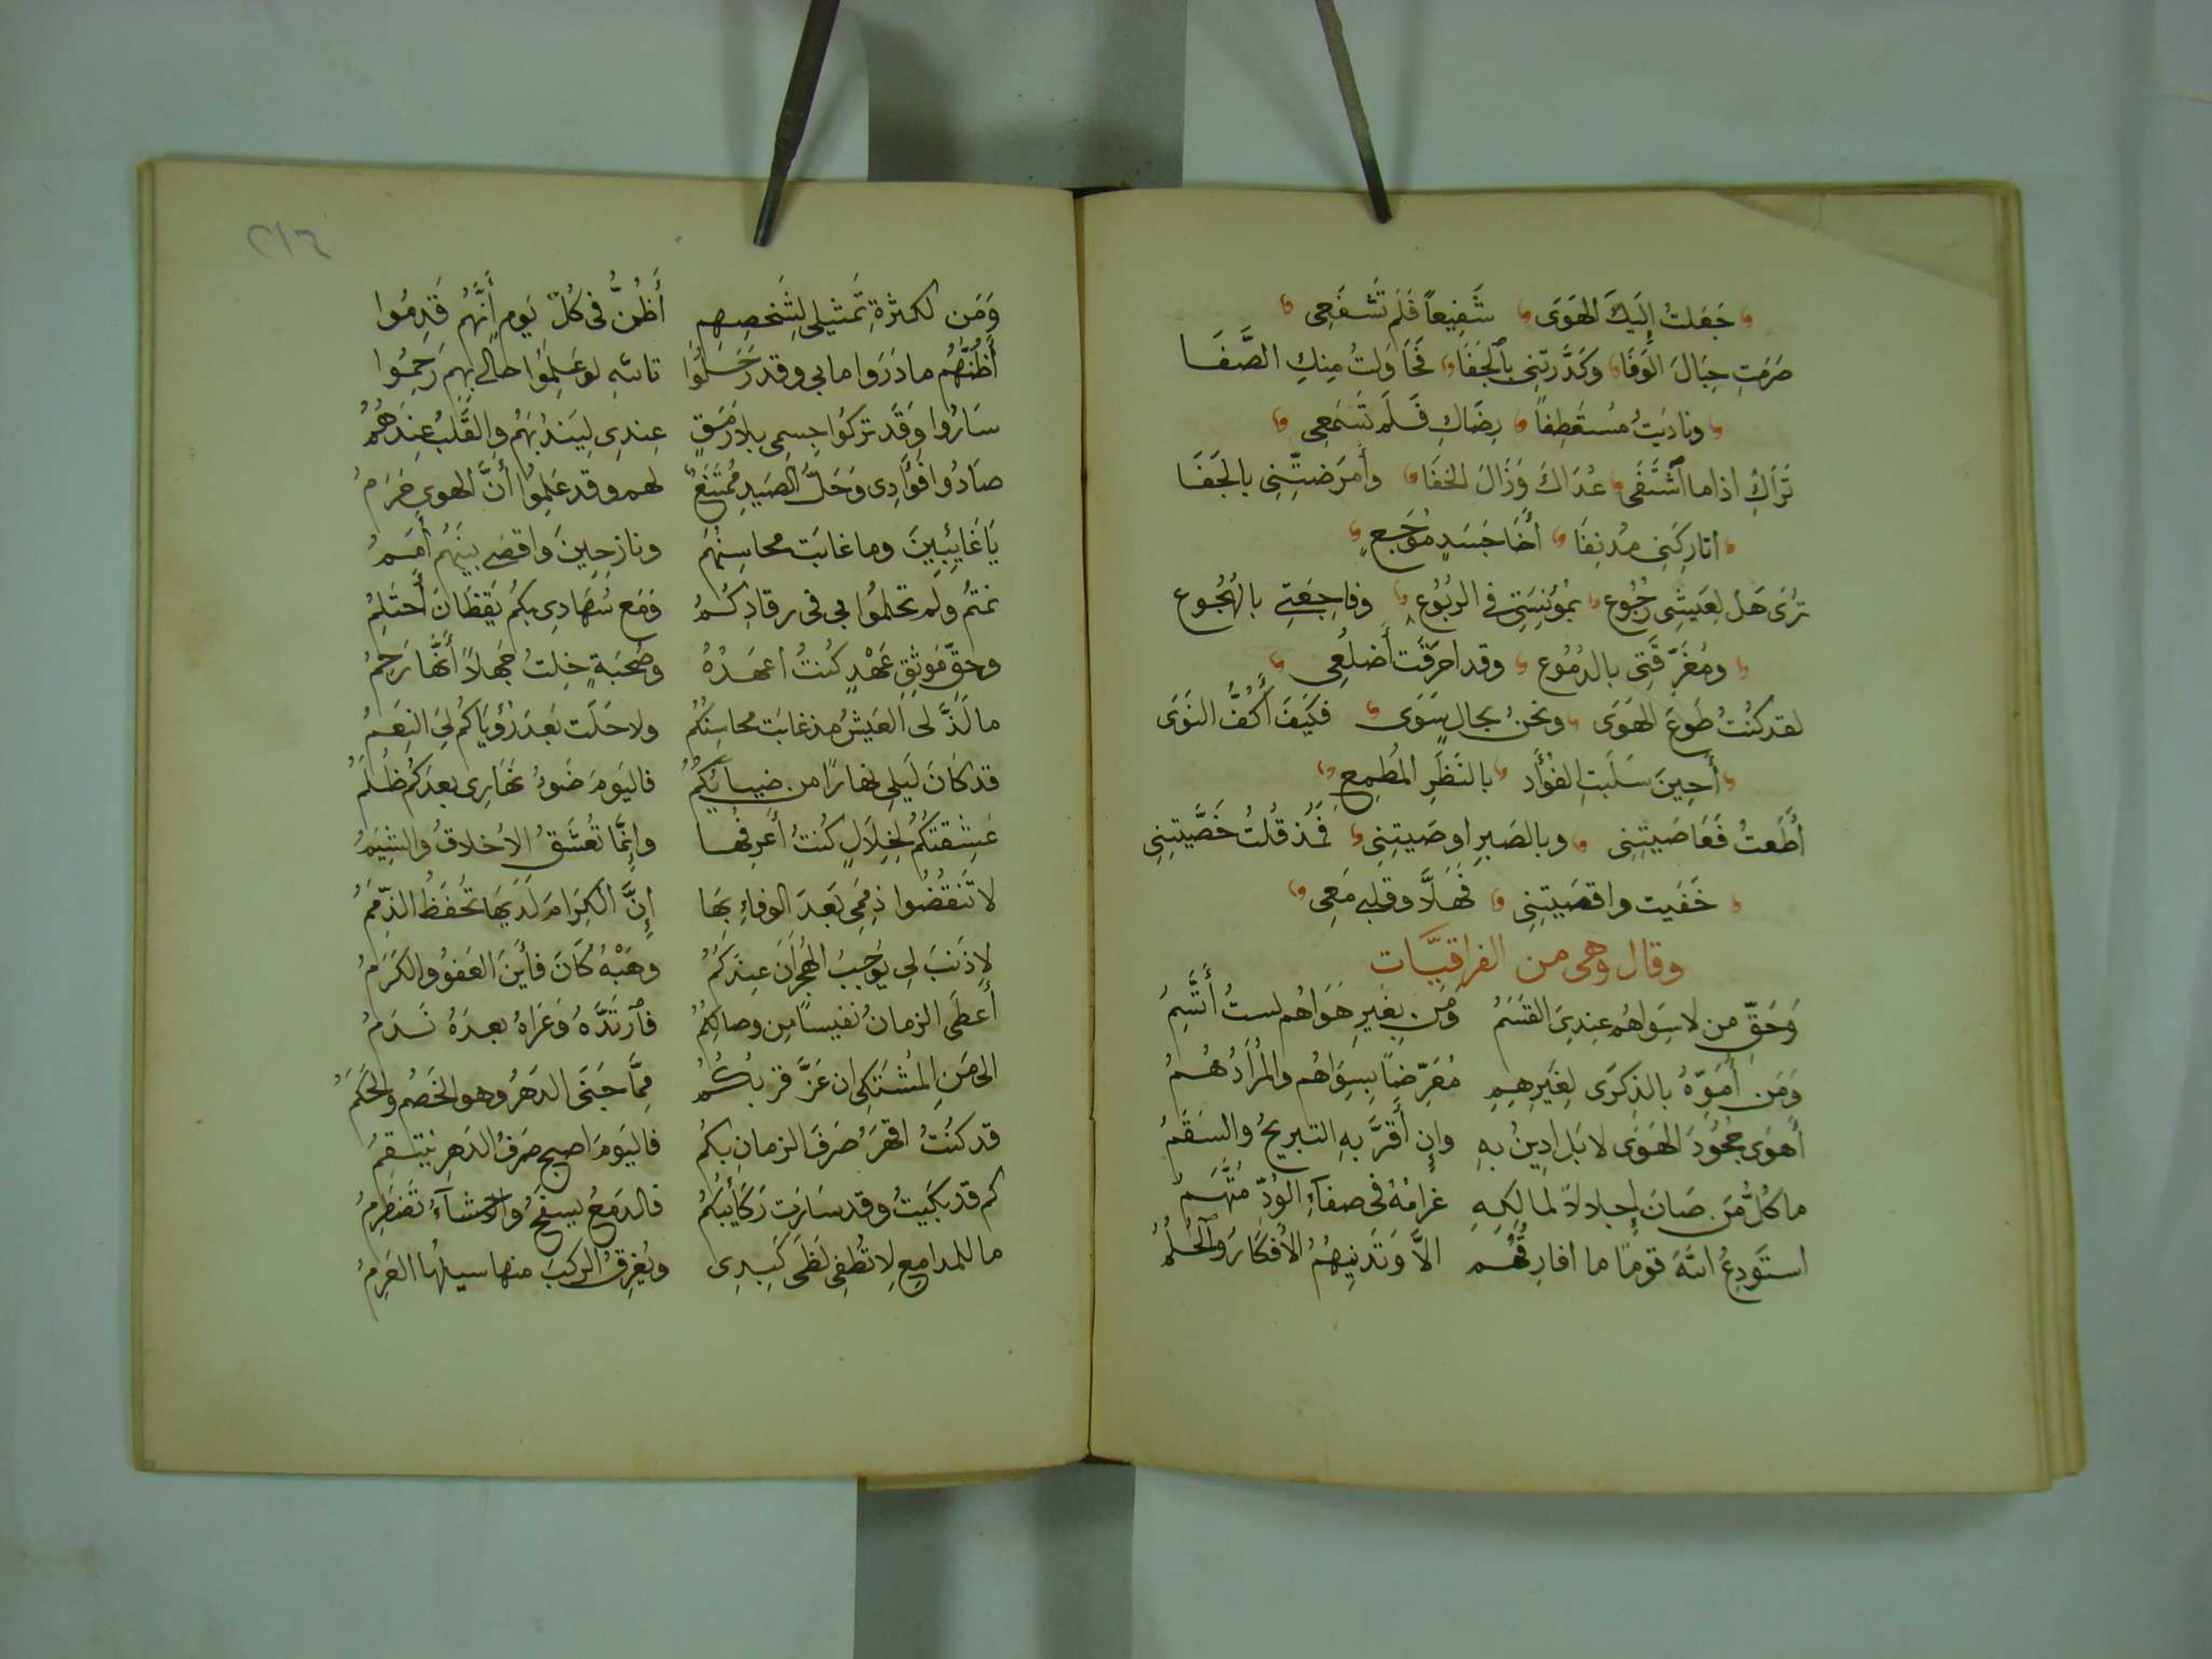 جَعَلتُ إِلَيكَ الهَوَى شَفِيعاً فَلَم تَشفَعِي
صَرَمتِ حِبَالَ الوَفَا وَكَدَّرتِنِي بِالجَفَا فَحَاوَلتُ مِنكِ الصَّفَا
ونادَيتُ مُستَعطِفاً رِضَاكِ فَلَم تَسمَعِي
تَرَاكِ اذا ما اشتَفَى عُدَاكَ وَزَالَ الخَفَا وأَمرَضتِنِي بالجَفَا
اتارِكَتِي مُدنِفَا أَخَا جَسَدٍ مُوجَعِ
تُرَى هَل لِعَيشِي رُجُوع بمُؤنِسَتِي في الرُبُوع وفاجِعَتِي بالهُجُوع
ومُغَرِّقَتِي بالدُمُوع وقد احرَقَت أَضلُعِي
لقد كُنتُ طَوعَ الهَوَى ونحنُ بحالٍ سَوَى فكَيفَ أَكُفُّ النَوَى
أَحِينَ سَلَبتِ الفُؤَاد بالنَظَرِ المُطمِعِ
أَطَعتُ فَعَاصَيتِنِي وبالصَبرِ اوصَيتِنِي فمُذ قُلتُ خَصَّيتِنِي
خَفَيت واقصَيتِنِي فَهَلَّا وقلبي مَعِي
وقال وهي من الفراقيَّات
وَحَقِّ من لا سِوَاهُم عِندِيَ القَسَمُ وَمَن بِغَيرِ هَوَاهُم لستُ أَتَّسِمُ
وَمَن أُمَوِّهُ بالذِكرَى لِغَيرِهِمِ مُعَرِّضاً بِسِوَاهُم والمُرَادُ هُمُ
أَهوَى جُحُودَ الهَوَى لا بَل ادِينُ بهِ وإِن أَقَرَّ بهِ التبريحُ والسَقَمُ
ما كُلُّ مَن صَانَ إِجلالاً لمالِكِهِ غرامُهُ في صفاءِ الوُدّ مُتَّهَمُ
استَودِعُ اللهَ قوماً ما افارِقُهُم الَّا وَتُدنِيهُمُ الأفكَارُ والحُلُمُ
وَمَن لكثرةِ تَمثيلي لِشَخصِهِمِ أَظُنُّ في كُلّ يَومٍ أَنَّهُم قَدِمُوا
أَظُنُّهُم ما دَرَوا ما بي وقد رَحَلُوا تاللهِ لو عَلِمُوا حالي بِهِم رَحِمُوا
سَارُوا وَقَد تركُوا جِسمِي بلا رَمَقٍ عِندِي لِيَندُبَهُم والقَلبُ عِندَهُمُ
صَادُوا فؤَادِى وَحَلُّ الصَيدِ مُمتَنَعٌ لهم وقد عَلِمُوا أَنَّ الهوى حَرَمُ
يَا غَايِبِينَ وما غابَت محاسِنُهُم ونازِحِينَ واقصى بينهُم أَمَمُ
نمتُم ولَم تحلموا بي في رقادِكُمُ وَمَع سُهَادِى بكُم يَقظَانَ أَحتَلِمُ
وحقِّ مَوثِقِ عَهْدٍ كُنتُ اعهَدُهُ وصُحبَةٍ خِلتُ جَهلاً أَنَّها رَحِمُ
ما لَذَّ لي العَيشُ مذ غابَت محاسِنُكُم ولا حَلَت بَعدَ رُؤيَاكُم لِيَ النِعَمُ
قد كَانَ لَيلي نهَارًا من ضيائِكُمُ فاليَومَ ضَوءُ نَهَارِى بعدَكُم ظُلَمُ
عَشِقتُكُم لِخِلَالٍ كُنتُ أَعرِفُها وإِنَّما تُعشَقُ الأخلاقُ والشِيَمُ
لا تَنقُضُوا ذِمَمِي بَعدَ الوفاءِ بِهَا إِنَّ الكِرَامَ لَدَيهَا تُحفَظُ الذِّمَمُ
لا ذَنبَ لي يُوجِبُ الهِجرَانَ عِندَكُمُ وهَبْهُ كَانَ فأَينَ العَفوُ والكَرَمُ
أَعطَى الزمانُ نفيساً مِن وصالِكُمُ فارتَدَّهُ وَعَرَاهُ بعدَهُ نَدَمُ
الى مَنِ المُشتَكى ان عَزَّ قربُكُمُ مِمَّا جَنَى الدَهرُ وهو الخَصمُ والحَكَمُ
قد كُنتُ اقهَرُ صَرفَ الزمانِ بكُم فاليَومَ اصبح صَرفُ الدَهرِ يَنتَقِمُ
كم قد بكَيتُ وقد سَارَت رَكَائِبُكُم فالدَمعُ يَسفَحُ والاحشاءُ تَضطَرِمُ
ما للمدامِعِ لا تُطفِي لَظَى كَبِدِى ويُغرِقُ الركبَ منها سيلُها العَرِمُ